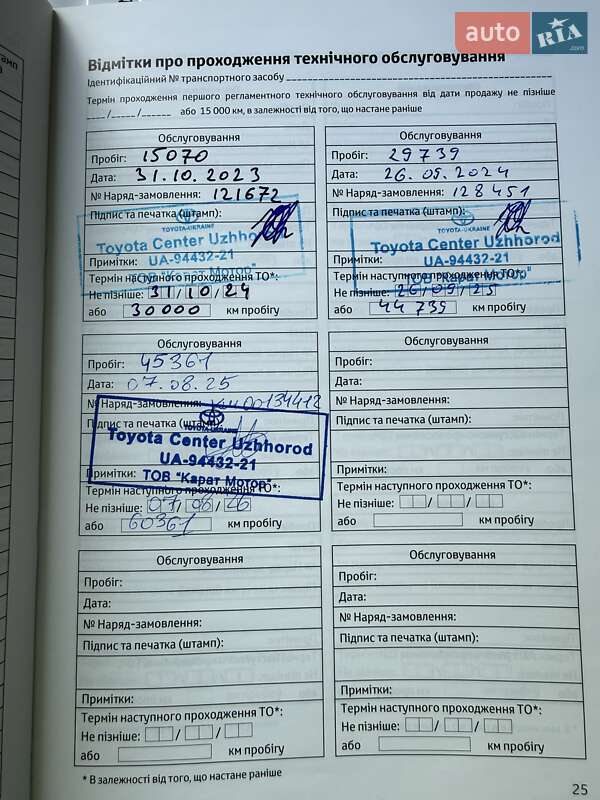 auto RIA .com
Відмітки про проходження технічного обслуговування
Ідентифікаційний № транспортного засобу
Термін проходження першого регламентного технічного обслуговування від дати продажу не пізніше
___/___/___ або 15 000 км, в залежності від того, що настане раніше
Обслуговування
Пробіг: 15070
Дата: 31.10.2023
№ Наряд-замовлення: 121672
Підпис та печатка (штамп):
TOYOTA-UKRAINE
Toyota Center Uzhhorod
UA-94432-21
ТОВ "Карат Мотор"
Примітки:
Термін наступного проходження ТО*:
Не пізніше: 31/10/24
або 30000 км пробігу
Обслуговування
Пробіг: 29739
Дата: 26.09.2024
№ Наряд-замовлення: 128451
Підпис та печатка (штамп):
TOYOTA-UKRAINE
Toyota Center Uzhhorod
UA-94432-21
ТОВ "Карат Мотор"
Примітки:
Термін наступного проходження ТО*:
Не пізніше: 26/09/25
або 44739 км пробігу
Обслуговування
Пробіг: 45361
Дата: 07.08.25
№ Наряд-замовлення:
Підпис та печатка (штамп):
TOYOTA-UKRAINE
Toyota Center Uzhhorod
UA-94432-21
ТОВ "Карат Мотор"
Примітки:
Термін наступного проходження ТО*:
Не пізніше: 07/08/26
або 60361 км пробігу
Обслуговування
Пробіг:
Дата:
№ Наряд-замовлення:
Підпис та печатка (штамп):
Примітки:
Термін наступного проходження ТО*:
Не пізніше: / /
або км пробігу
Обслуговування
Пробіг:
Дата:
№ Наряд-замовлення:
Підпис та печатка (штамп):
Примітки:
Термін наступного проходження ТО*:
Не пізніше: / /
або км пробігу
Обслуговування
Пробіг:
Дата:
№ Наряд-замовлення:
Підпис та печатка (штамп):
Примітки:
Термін наступного проходження ТО*:
Не пізніше: / /
або км пробігу
* В залежності від того, що настане раніше
25